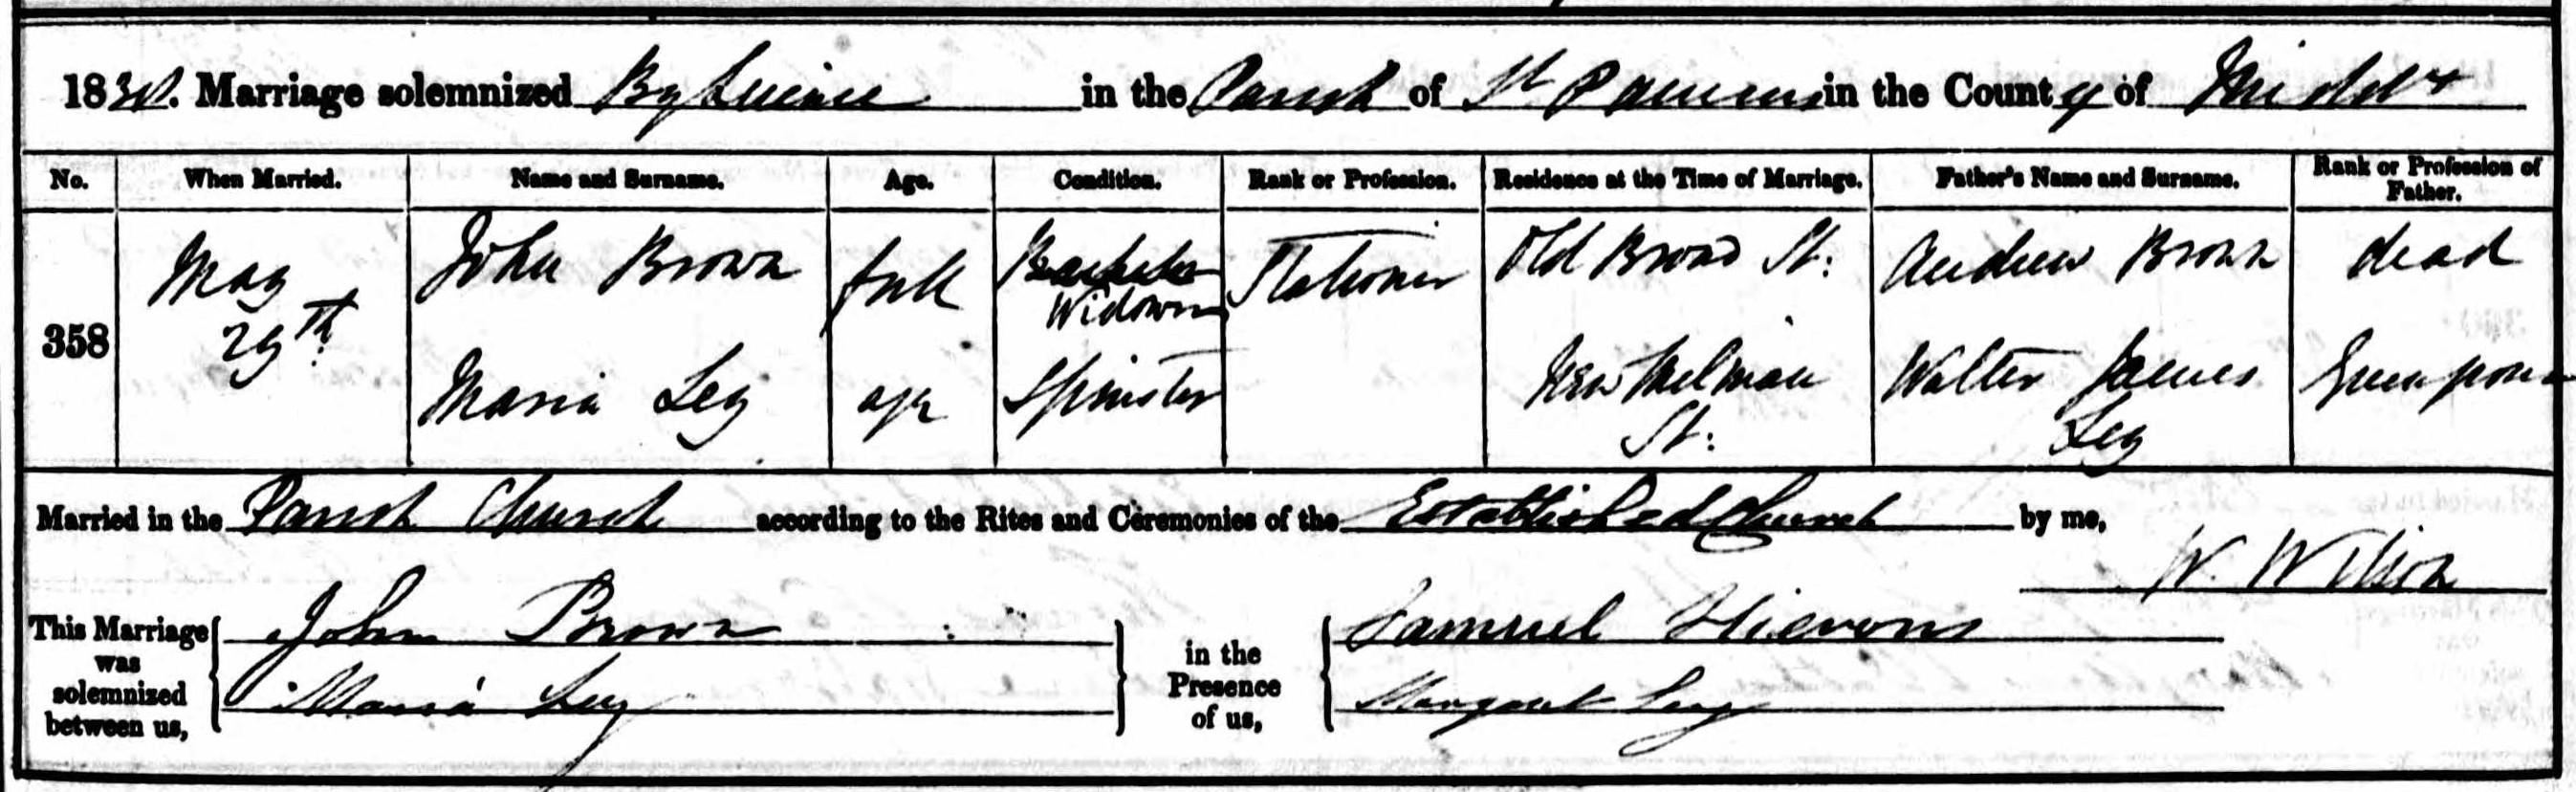 1838. Marriage solemnized By Licence in the Parish of St Pancras in the County of Middx
No. When Married. Name and Surname. Age. Condition. Rank or Profession. Residence at the Time of Marriage. Father's Name and Surname. Rank or Profession of Father.
358 May 29th. John Brown full Bachelor Widower Stationer Old Broad St: Andrew Brown dead
Maria Ley age Spinster New Milman St: Walter James Ley
Married in the Parish Church according to the Rites and Ceremonies of the Established Church by me,
W. Wilson
This Marriage was solemnized between us, John Brown in the Presence of us, Samuel
Maria Ley Margaret Ley